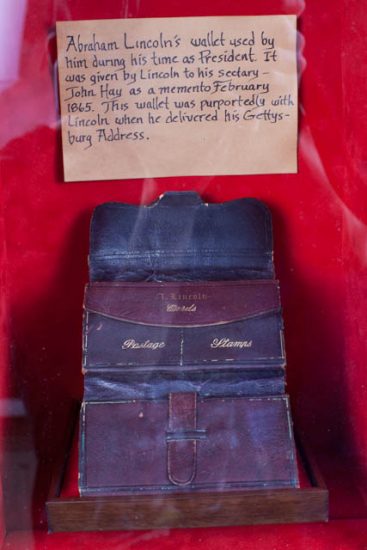 Abraham Lincoln's wallet used by
him during his time as President. It
was given by Lincoln to his sectary -
John Hay as a memento February
1865. This wallet was purportedly with
Lincoln when he delivered his Gettys-
burg Address.
A. Lincoln
Cards
Postage Stamps